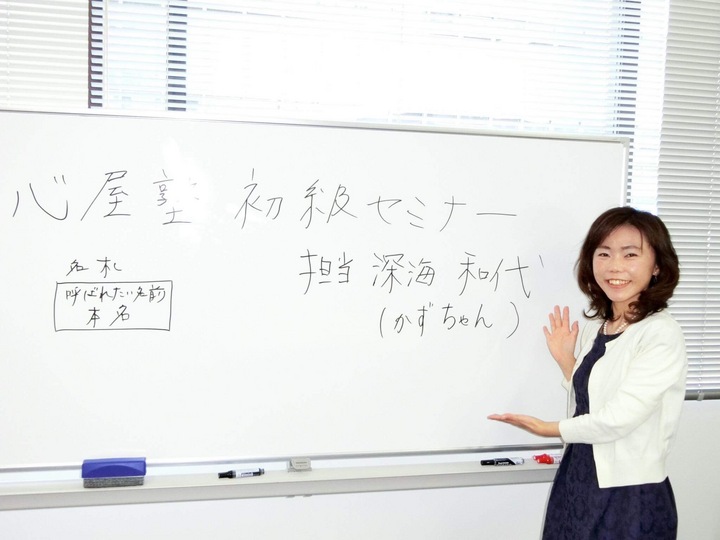 心屋塾 初級セミナー
担当 深海 和代
(かずちゃん)
名札
呼ばれたい名前
本名